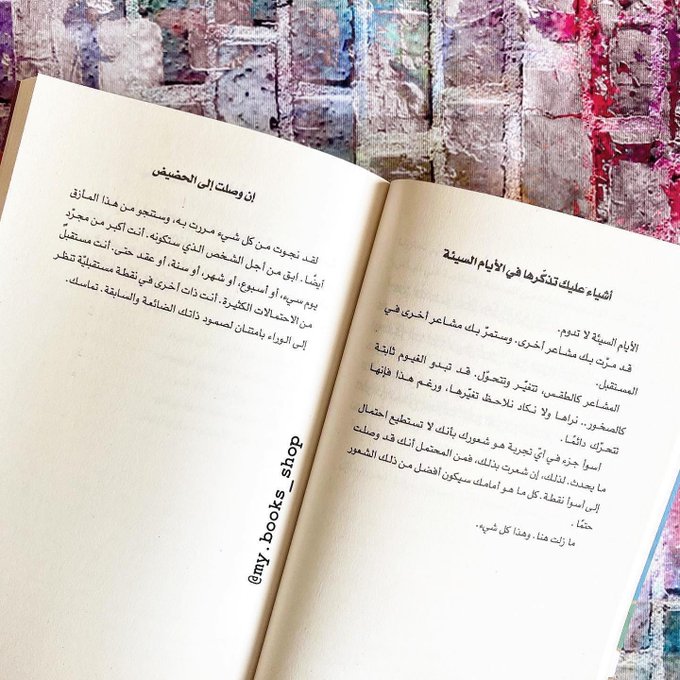 أشياء عليك تذكّرها في الأيام السيئة
الأيام السيئة لا تدوم.
قد مرّت بك مشاعر أخرى. وستمرّ بك مشاعر أخرى في
المستقبل.
المشاعر كالطقس، تتغيّر وتتحوّل. قد تبدو الغيوم ثابتة
كالصخور.. نراها ولا نكاد نلاحظ تغيّرها، ورغم هذا فإنها
تتحرّك دائمًا.
أسوأ جزء في أيّ تجربة هو شعورك بأنك لا تستطيع احتمال
ما يحدث. لذلك، إن شعرت بذلك، فمن المحتمل أنك قد وصلت
إلى أسوأ نقطة. كل ما هو أمامك سيكون أفضل من ذلك الشعور
حتمًا.
ما زلت هنا. وهذا كل شيء.
إن وصلت إلى الحضيض
لقد نجوت من كل شيء مررت به، وستنجو من هذا المازق
أيضًا. ابق من أجل الشخص الذي ستكونه. أنت أكبر من مجرّد
يوم سيء، أو أسبوع، أو شهر، أو سنة، أو عقد حتى. أنت مستقبلٌ
من الاحتمالات الكثيرة. أنت ذات أخرى في نقطة مستقبليّة تنظر
إلى الوراء بامتنان لصمود ذاتك الضائعة والسابقة. تماسك.
@my.books_shop